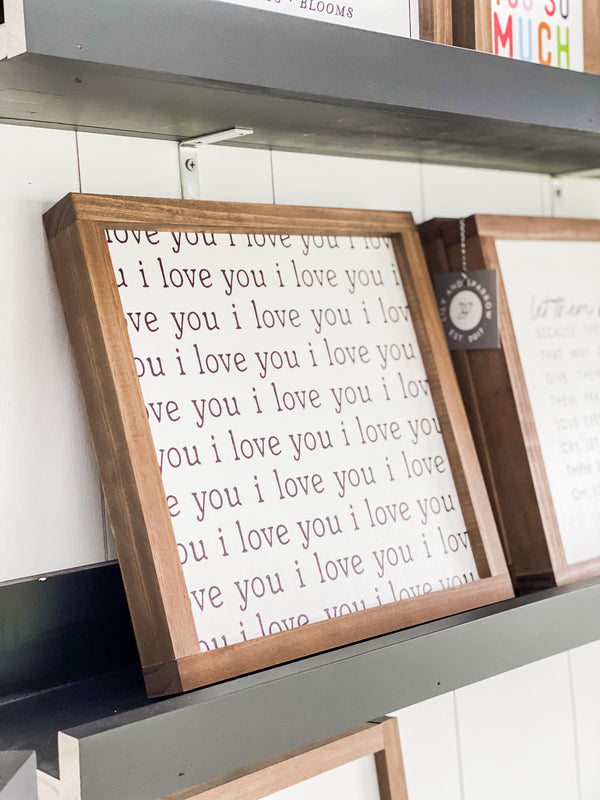 BLOOMS
YOU SO
MUCH
love you i love you i lov
u i love you i love you i
ve you i love you i lov
ou i love you i love you
ove you i love you i lov
you i love you i love you
e you i love you i love
ou i love you i love you
ve you i love you i lov
ou i love you i love you
LILY AND SPARROW
EST. 2017
let them
BECAUSE
THAT WAY
GIVE THEM
THEM
LOVE
CRY, LET
THEM
OH,